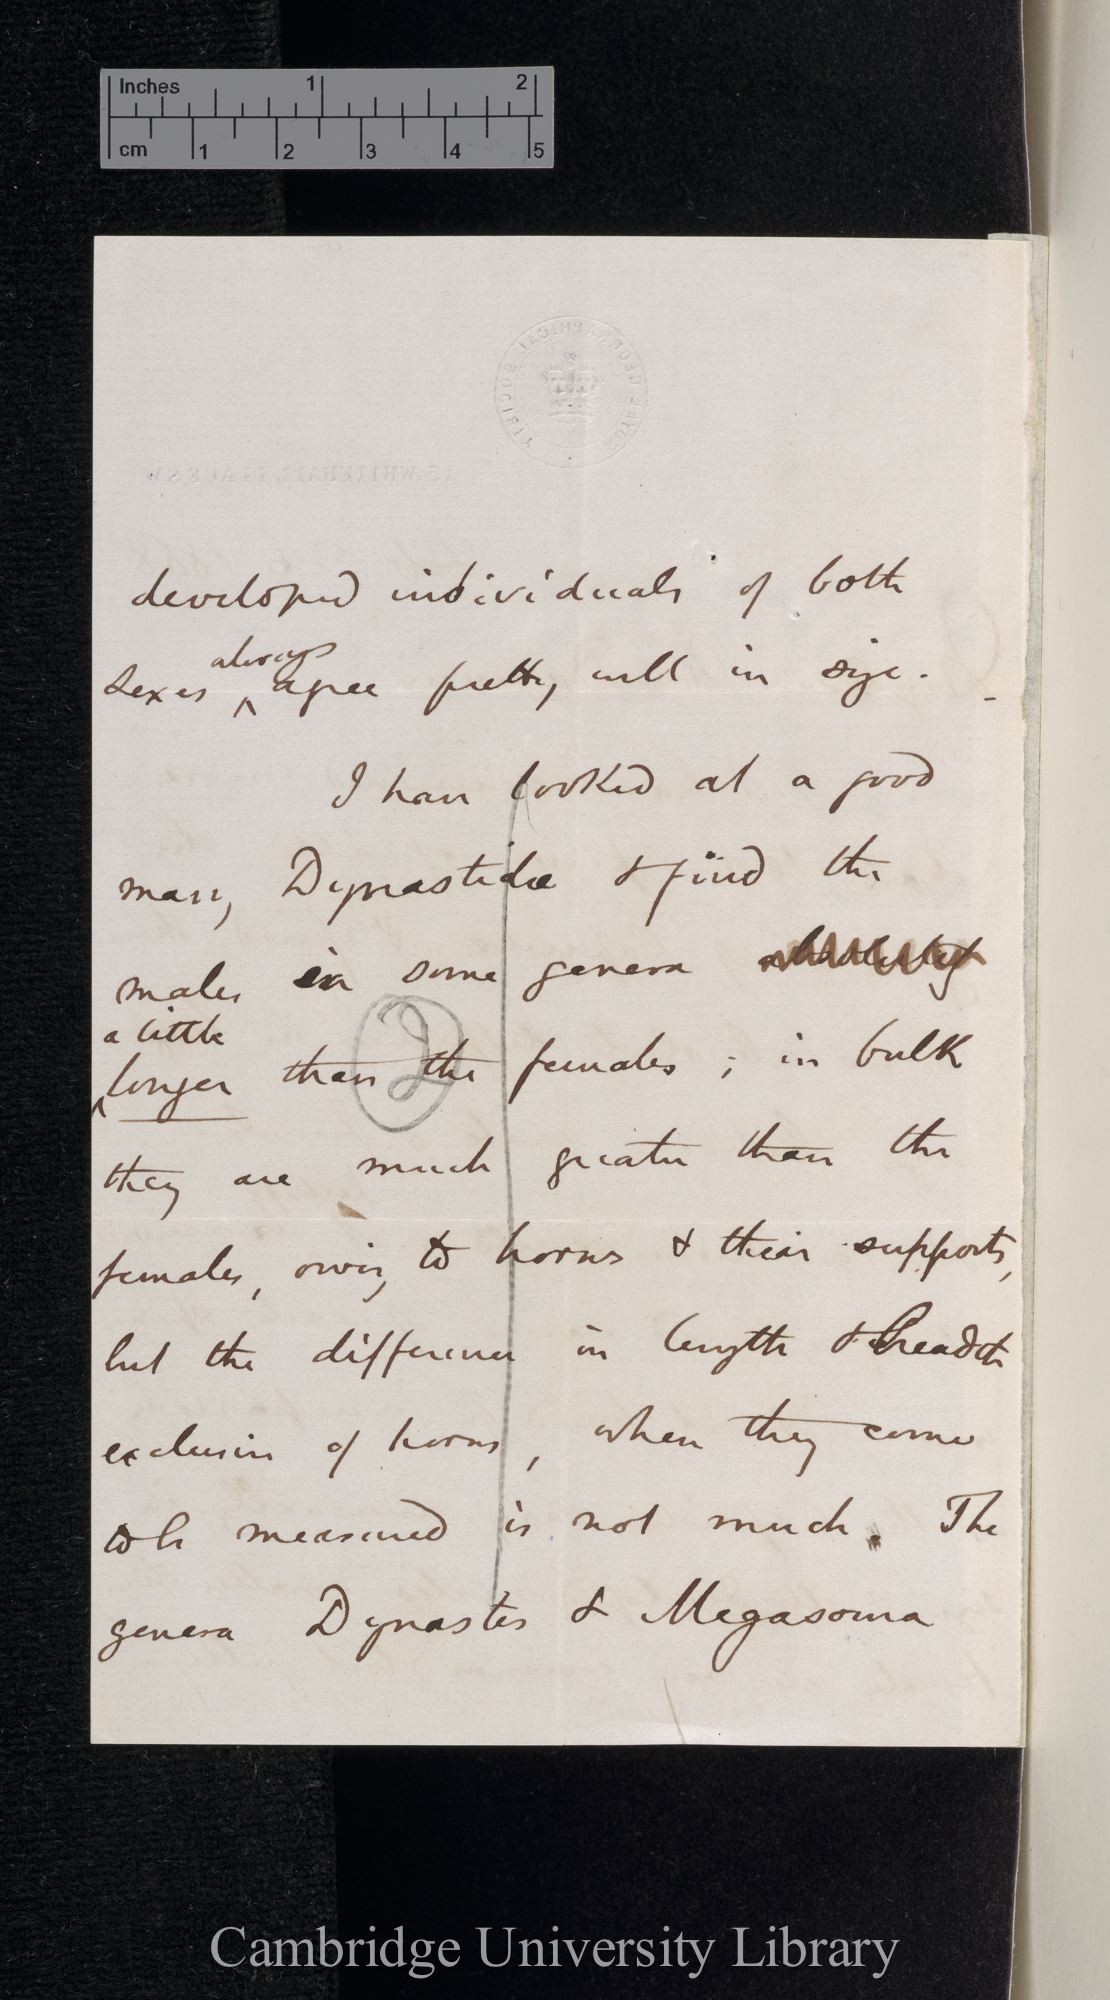 Inches 1 2
cm 1 2 3 4 5
ROYAL GEOGRAPHICAL SOCIETY
15, WHITEHALL PLACE S W
developed individuals of both
always
sexes ^ agree pretty well in size.
I have looked at a good
many Dynastidæ & find the
males in some genera absolutely
a little
^ longer than the females ; in bulk
2
they are much greater than the
females, owing to horns & their supports,
but the difference in length & breadth
exclusive of horns, when they come
to be measured is not much. The
genera Dynastes & Megasoma
Cambridge University Library